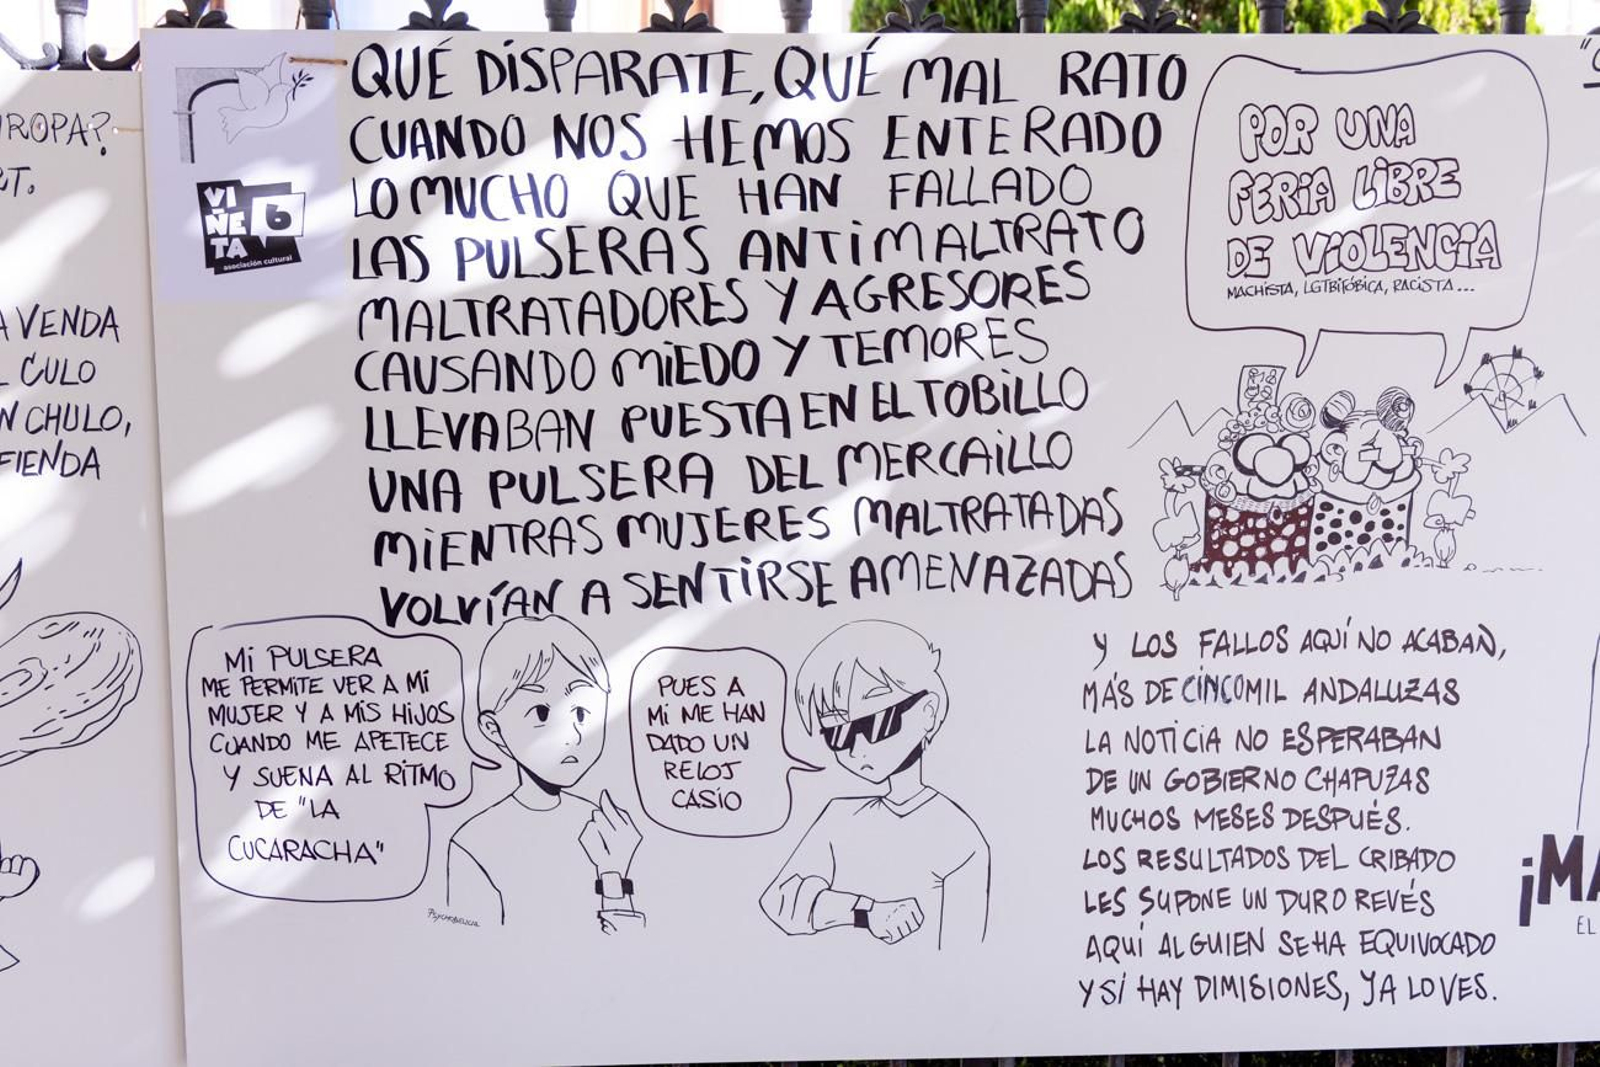 UROPA?
A VENDA
CULO
N CHULO,
FIENDA
VIÑETA 6
asociación cultural
QUÉ DISPARATE, QUÉ MAL RATO
CUANDO NOS HEMOS ENTERADO
LO MUCHO QUE HAN FALLADO
LAS PULSERAS ANTIMALTRATO
MALTRATADORES Y AGRESORES
CAUSANDO MIEDO Y TEMORES
LLEVABAN PUESTA EN EL TOBILLO
UNA PULSERA DEL MERCAILLO
MIENTRAS MUJERES MALTRATADAS
VOLVÍAN A SENTIRSE AMENAZADAS
POR UNA
FERIA LIBRE
DE VIOLENCIA
MACHISTA, LGTBIFÓBICA, RACISTA...
MI PULSERA
ME PERMITE VER A MI
MUJER Y A MIS HIJOS
CUANDO ME APETECE
Y SUENA AL RITMO
DE "LA
CUCARACHA"
PUES A
MI ME HAN
DADO UN
RELOJ
CASIO
Y LOS FALLOS AQUÍ NO ACABAN,
MÁS DE CINCO MIL ANDALUZAS
LA NOTICIA NO ESPERABAN
DE UN GOBIERNO CHAPUZAS
MUCHOS MESES DESPUÉS.
LOS RESULTADOS DEL CRIBADO
LES SUPONE UN DURO REVÉS
AQUÍ ALGUIEN SE HA EQUIVOCADO
Y SÍ HAY DIMISIONES, YA LO VES.
¡MA
EL